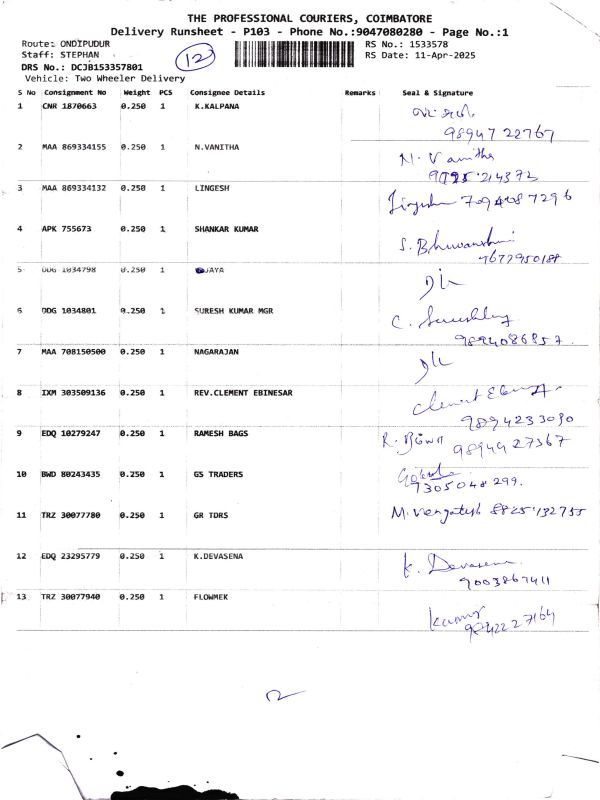 THE PROFESSIONAL COURIERS, COIMBATORE
Delivery Runsheet - P103 - Phone No.:9047080280 - Page No.:1
Route: ONDIPUDUR RS No.: 1533578
Staff: STEPHAN 12 RS Date: 11-Apr-2025
DRS No.: DCJB153357801
Vehicle: Two Wheeler Delivery
S No Consignment No Weight PCS Consignee Details Remarks Seal & Signature
1 CNR 1870663 0.250 1 K.KALPANA
98947 22767
2 MAA 869334155 0.250 1 N.VANITHA N. Vanitha
3 MAA 869334132 0.250 1 LINGESH
4 APK 755673 0.250 1 SHANKAR KUMAR S. Bhuvaneshwari
5 DDG 1034798 0.250 1
6 DDG 1034801 0.250 1 SURESH KUMAR MGR C.
9894086857
7 MAA 708150500 0.250 1 NAGARAJAN
8 IXM 303509136 0.250 1 REV.CLEMENT EBINESAR Clement
9894233030
9 EDQ 10279247 0.250 1 RAMESH BAGS R.
9894427367
10 BWD 80243435 0.250 1 GS TRADERS
7305048299.
11 TRZ 30077780 0.250 1 GR TDRS M. Vengatesh 8825132755
12 EDQ 23295779 0.250 1 K.DEVASENA K. Devasena
9003867411
13 TRZ 30077940 0.250 1 FLOWMEK
9842227164